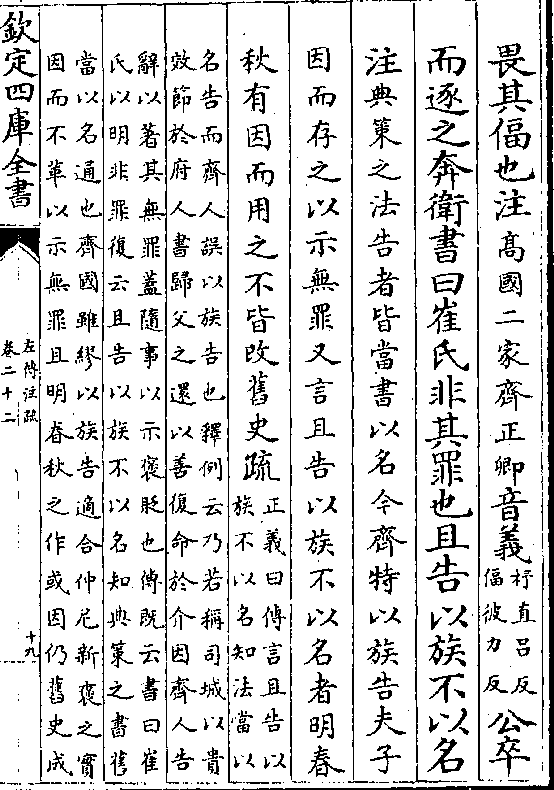 畏其偪也注高國二家齊正卿音義杼直呂反
偪彼力反公卒
而逐之奔衛書曰崔氏非其罪也且告以族不以名
注典策之法告者皆當書以名今齊特以族告夫子
因而存之以示無罪又言且告以族不以名者明春
秋有因而用之不皆改舊史疏正義曰傳言且告以
族不以名知法當以
名告而齊人誤以族告也釋例云乃若稱司城以貴
效節於府人書歸父之還以善復命於介因齊人告
辭以著其無罪蓋隨事以示褒貶也傳既云書曰崔
氏以明非罪復云且告以族不以名知典策之書舊
當以名通也齊國雖繆以族告適合仲尼新褒之實
因而不革以示無罪且明春秋之作或因仍舊史成
欽定四庫全書
左傳注疏
卷二十二
十九